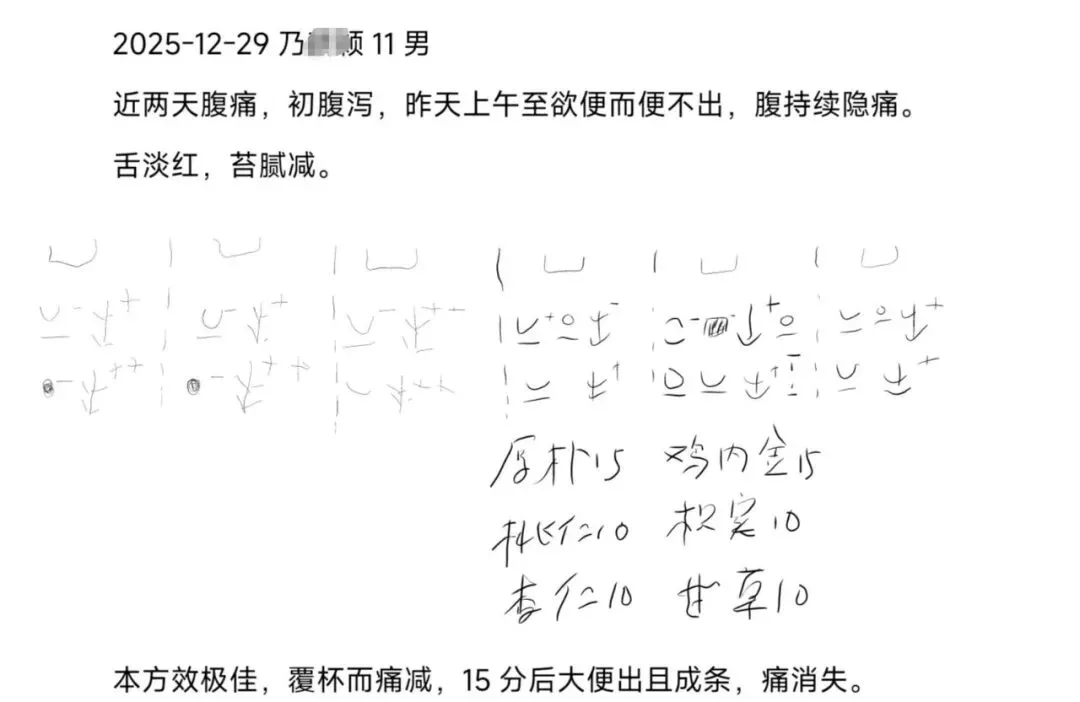 2025-12-29 乃 颖 11 男
近两天腹痛，初腹泻，昨天上午至欲便而便不出，腹持续隐痛。
舌淡红，苔腻减。
厚朴15 鸡内金15
桃仁10 枳实10
杏仁10 甘草10
本方效极佳，覆杯而痛减，15 分后大便出且成条，痛消失。